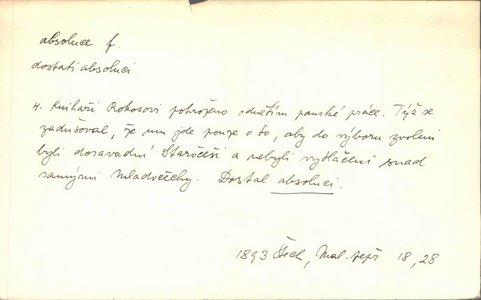 absoluce f.
dostati absoluci
4. Knihaři Rokosovi pohroženo odnětím panské práce. Týž se
zadušoval, že mu jde pouze o to, aby do výboru zvoleni
byli dosavadní Staročeši a nebyli vytlačeni snad
samými Mladočechy. Dostal absoluci.
1893 Čech, Mal. 18, 28